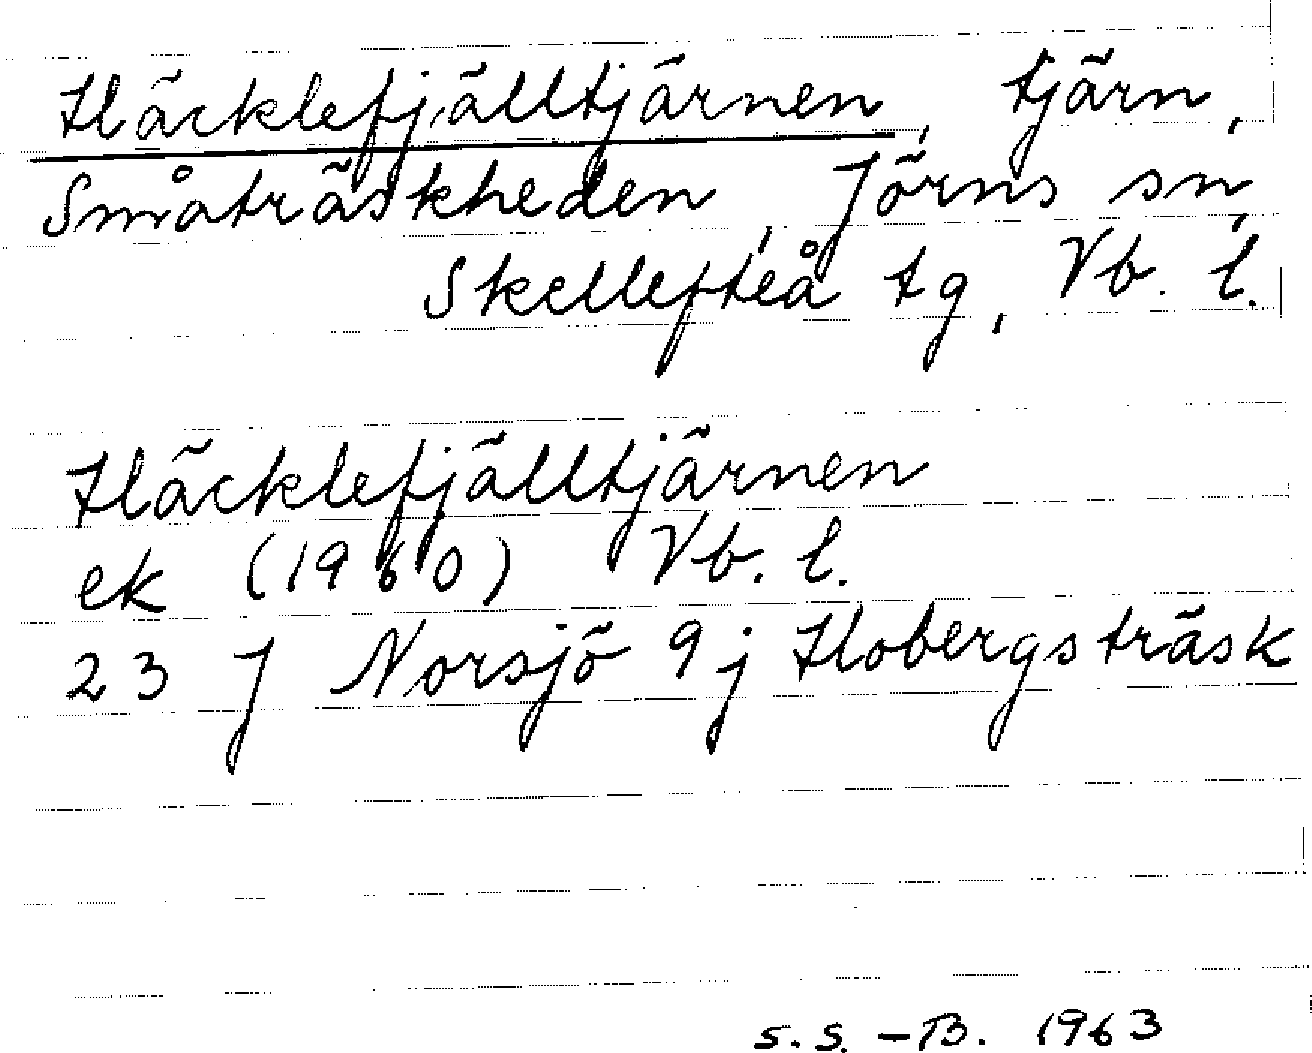 Häcklefjälltjärnen, tjärn,
Småträskheden, Jörns sn,
Skellefteå tg, Vb. l.
Häcklefjälltjärnen
ek (1960) Vb. l.
23 J Norsjö 9j Hobergsträsk
S.S. - B. 1963